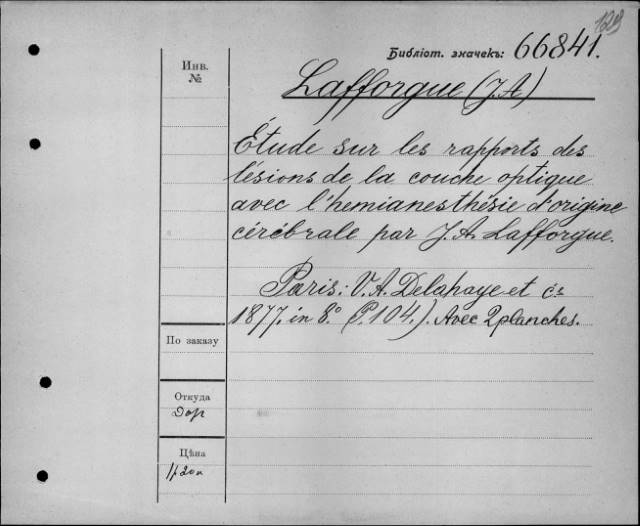 129
Библіот. значекъ: 66841.
Инв.
№
Lafforgue (J.A)
Étude sur les rapports des
lésions de la couche optique
avec l'hemianesthésie d'origine
cérébrale par J.A. Lafforgue.
Paris: V.A. Delahaye et cⁱᵉ
1877. in 8.° (P.104.). Avec 2 planches.
По заказу
Откуда
Дар
Цѣна
1р20к